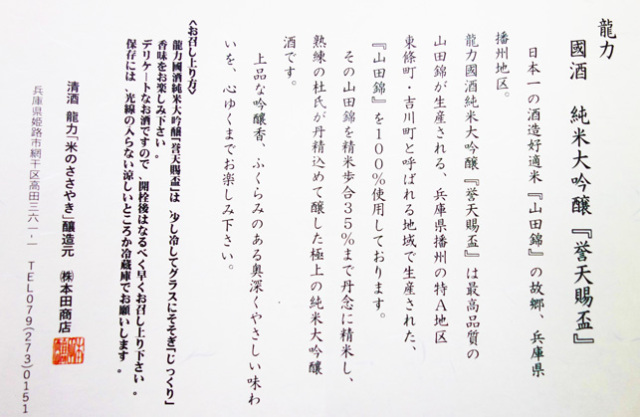 龍力
國酒　純米大吟醸『誉天賜盃』
日本一の酒造好適米『山田錦』の故郷、兵庫県
播州地区。
龍力國酒純米大吟醸『誉天賜盃』は最高品質の
山田錦が生産される、兵庫県播州の特A地区
東條町・吉川町と呼ばれる地域で生産された、
『山田錦』を100%使用しております。
その山田錦を精米歩合35%まで丹念に精米し、
熟練の杜氏が丹精込めて醸した極上の純米大吟醸
酒です。
上品な吟醸香、ふくらみのある奥深くやさしい味わ
いを、心ゆくまでお楽しみ下さい。
〈お召し上り方〉
龍力國酒純米大吟醸『誉天賜盃』は、少し冷してグラスにそそぎ「じっくり」
香味をお楽しみ下さい。
デリケートなお酒ですので、開栓後はなるべく早くお召し上り下さい。
保存には、光線の入らない涼しいところか冷蔵庫でお願いします。
清酒　龍力「米のささやき」醸造元　㈱本田商店
兵庫県姫路市網干区高田三六一-一　TEL079(273)0151